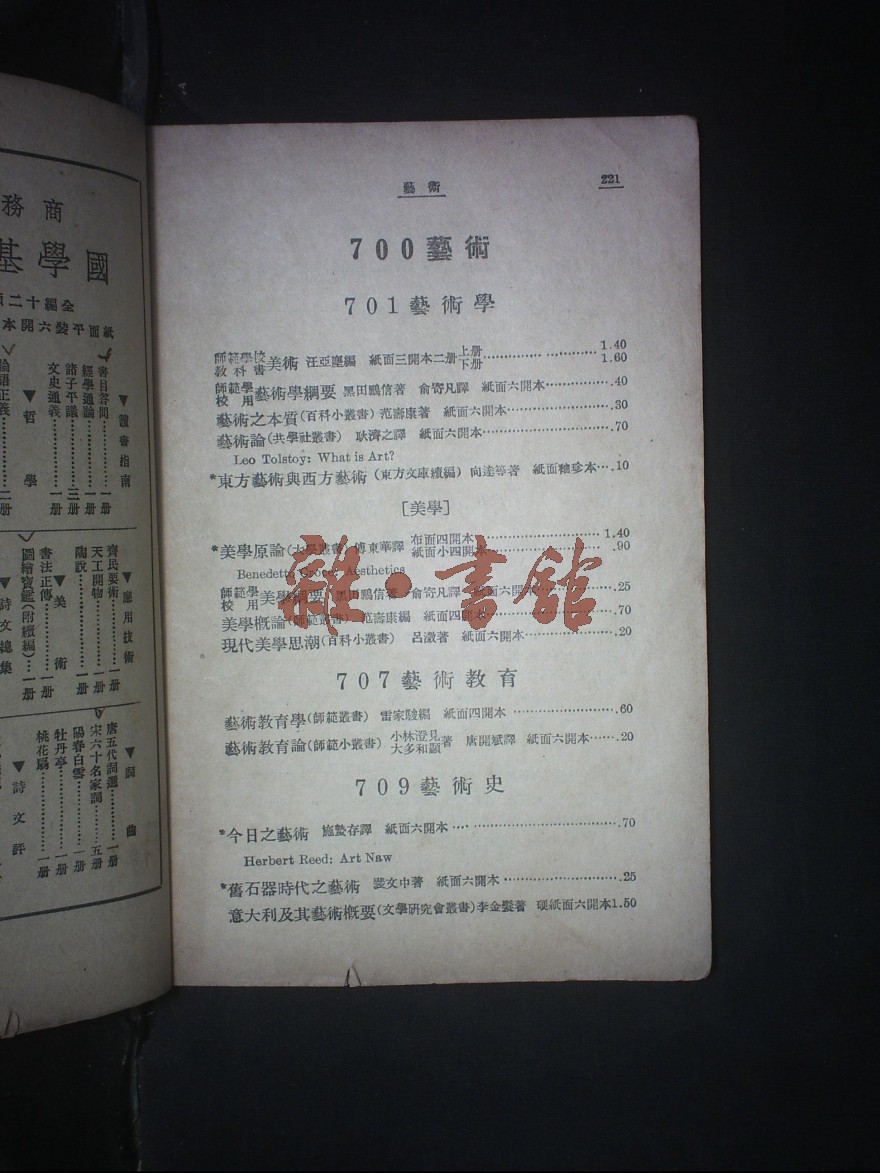 藝術
221
700藝術
701藝術學
師範學校教科書美術 汪亞塵編 紙面三開本二册上册……………1.40
下册……………1.60
師範學校用藝術學綱要 黑田鵬信著 俞寄凡譯 紙面六開本…….40
藝術之本質(百科小叢書)范壽康著 紙面六開本…………….30
藝術論(共學社叢書) 耿濟之譯 紙面六開本…………….70
Leo Tolstoy: What is Art?
*東方藝術與西方藝術(東方文庫續編) 向達等著 紙面袖珍本….10
[美學]
*美學原論(大學叢書)傅東華譯 布面四開本……………1.40
紙面小四開本…………….90
Benedetto Croce: Aesthetics
師範學校用美學綱要 黑田鵬信著 俞寄凡譯 紙面六開本……….25
美學概論(師範叢書)范壽康編 紙面四開本…………….70
現代美學思潮(百科小叢書) 呂澂著 紙面六開本…………….20
707藝術教育
藝術教育學(師範叢書) 雷家駿編 紙面四開本…………….60
藝術教育論(師範小叢書) 小林澄見 大多和顯著 唐開斌譯 紙面六開本…….20
709藝術史
*今日之藝術 施蟄存譯 紙面六開本……………….70
Herbert Reed: Art Naw
*舊石器時代之藝術 裴文中著 紙面六開本……………….25
意大利及其藝術概要(文學研究會叢書)李金髮著 硬紙面六開本1.50
雜·書館
商務
國學基
全編十二類
紙面平裝六開本
▼讀書指南
書目答問……一册
經學通論……一册
諸子平議……三册
文史通義……一册
▼哲學
論語正義……二册
▼應用技術
齊民要術……一册
天工開物……一册
陶說……一册
▼美術
書法正傳……一册
圖繪寶鑑(附續編)…一册
▼詩文總集
▼詞曲
唐五代詞選……一册
宋六十名家詞……五册
陽春白雪……一册
牡丹亭……一册
桃花扇……一册
▼詩文評